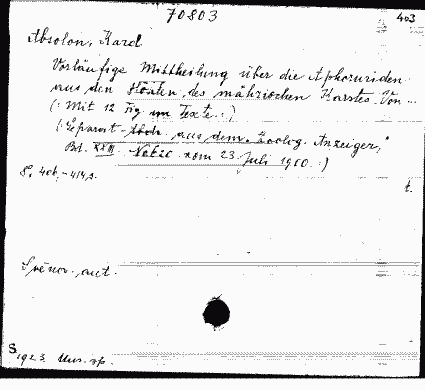 70803
403
Absolon, Karel
Vorläufige Mittheilung über die Aphoruriden
aus den Höhlen des mährischen Karstes. Von ...
(: Mit 12 Fig. im Texte. :)
(: Separat-Abdr. aus dem „Zoolog. Anzeiger,"
Bd. XXIII. No 620 vom 23. Juli 1900. :)
8. 406.-414 s.
t.
Svěnov. aut.
S
1923. Mus. sp.